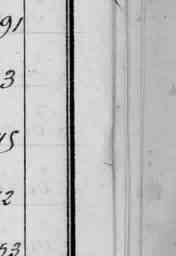 91
3
15
2
53